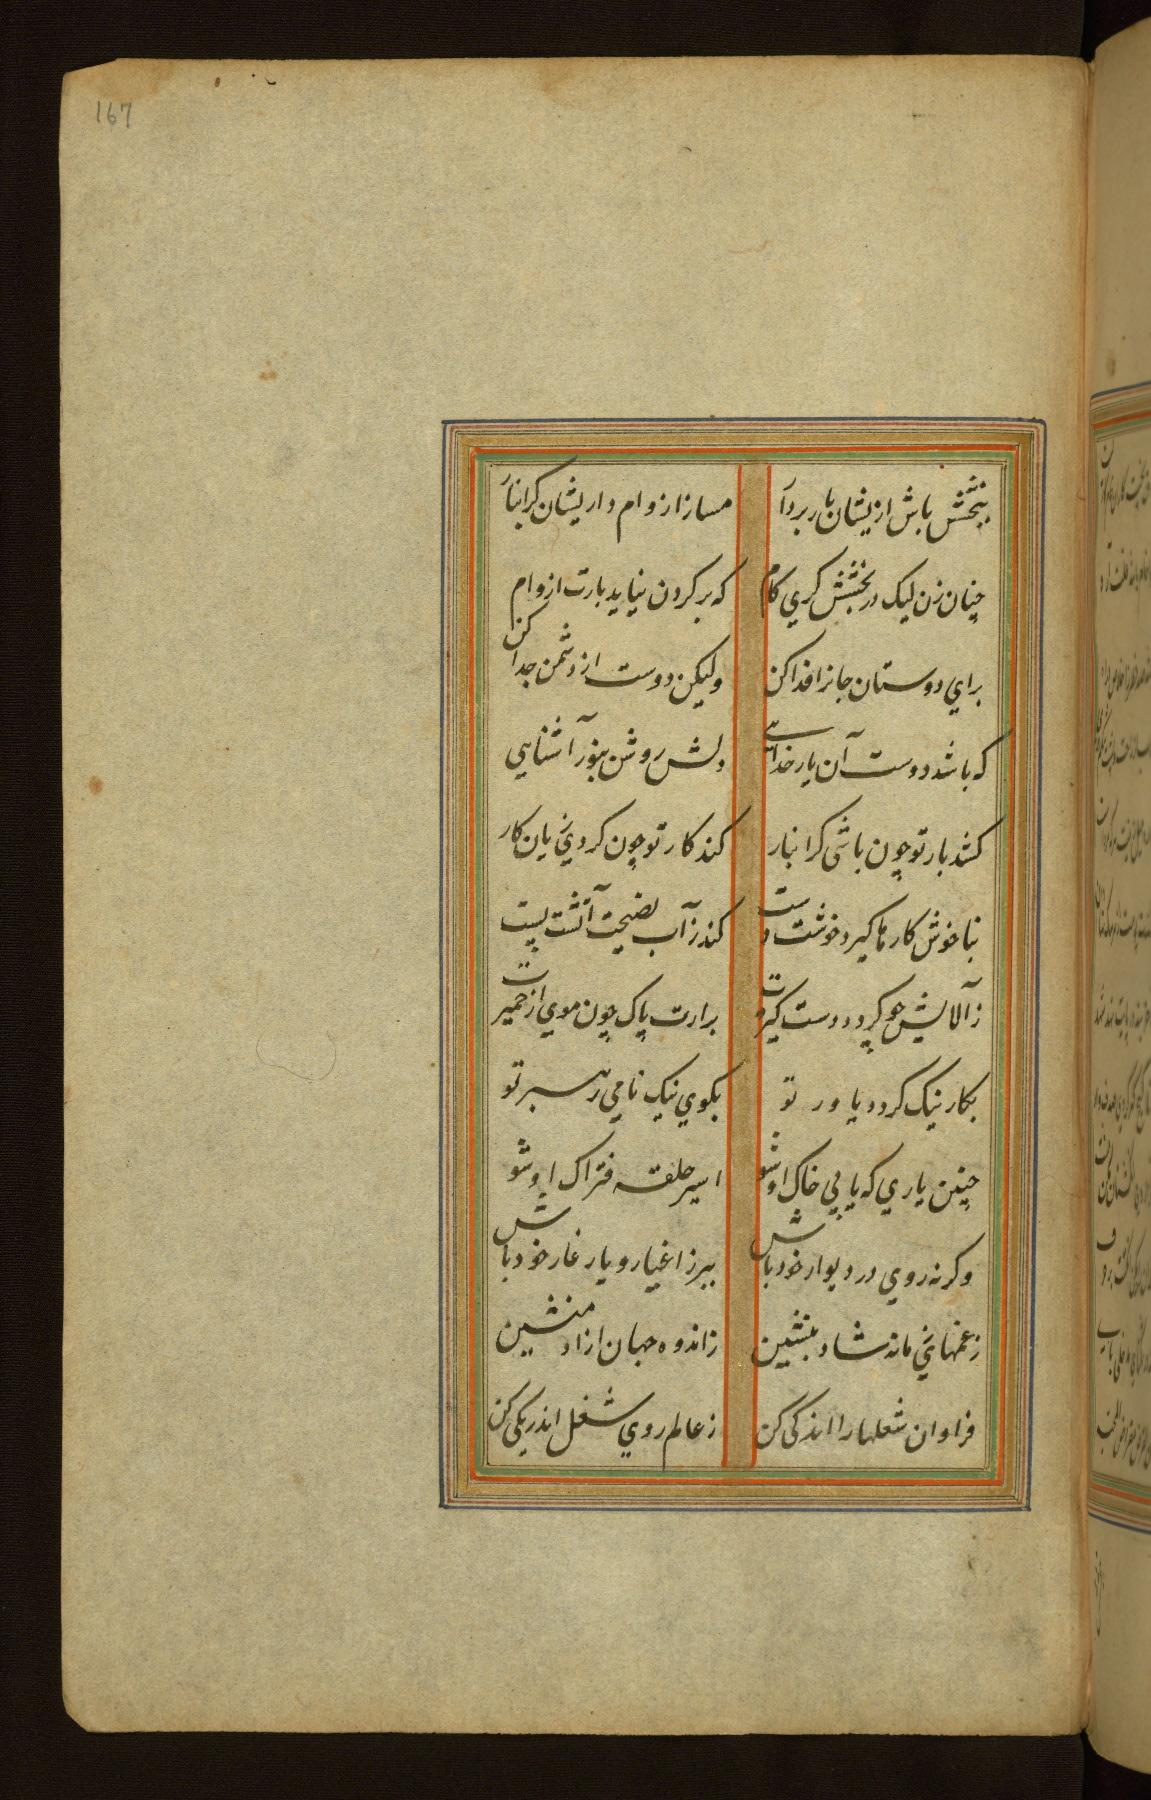 167
ببخشش باش ازیشان بار بردار
مساز از وام داریشان کرانبار
چنان زن لیک در بخشش کری کام
که بر کردن نیاید بارت از وام
برای دوستان جانرا فدا کن
ولیکن دوست از دشمن جدا کن
که باشد دوست آن یار خدائی
دلش روشن بنور آشنایی
کشد بار تو چون باشی کرانبار
کند کار تو چون کردی ز یان کار
بناخوش کارها کیرد خوشت دست
کند ز آب نصیحت آتشت پست
ز آلایش چو کیرد دوست کیرت
برارت پاک چون موی از خمیرت
بکار نیک کردد یاور تو
بکوی نیک نامی رهبر تو
چنین یاری که یابی خاک او شو
اسیر حلقه فتراک او شو
وکرنه روی در دیوار خود باش
ببر ز اغیار و یار غار خود باش
ز غمهای زمانه شاد بنشین
ز اندوه جهان ازاد منشین
فراوان شغلها را اندکی کن
ز عالم روی شغل اندر یکی کن